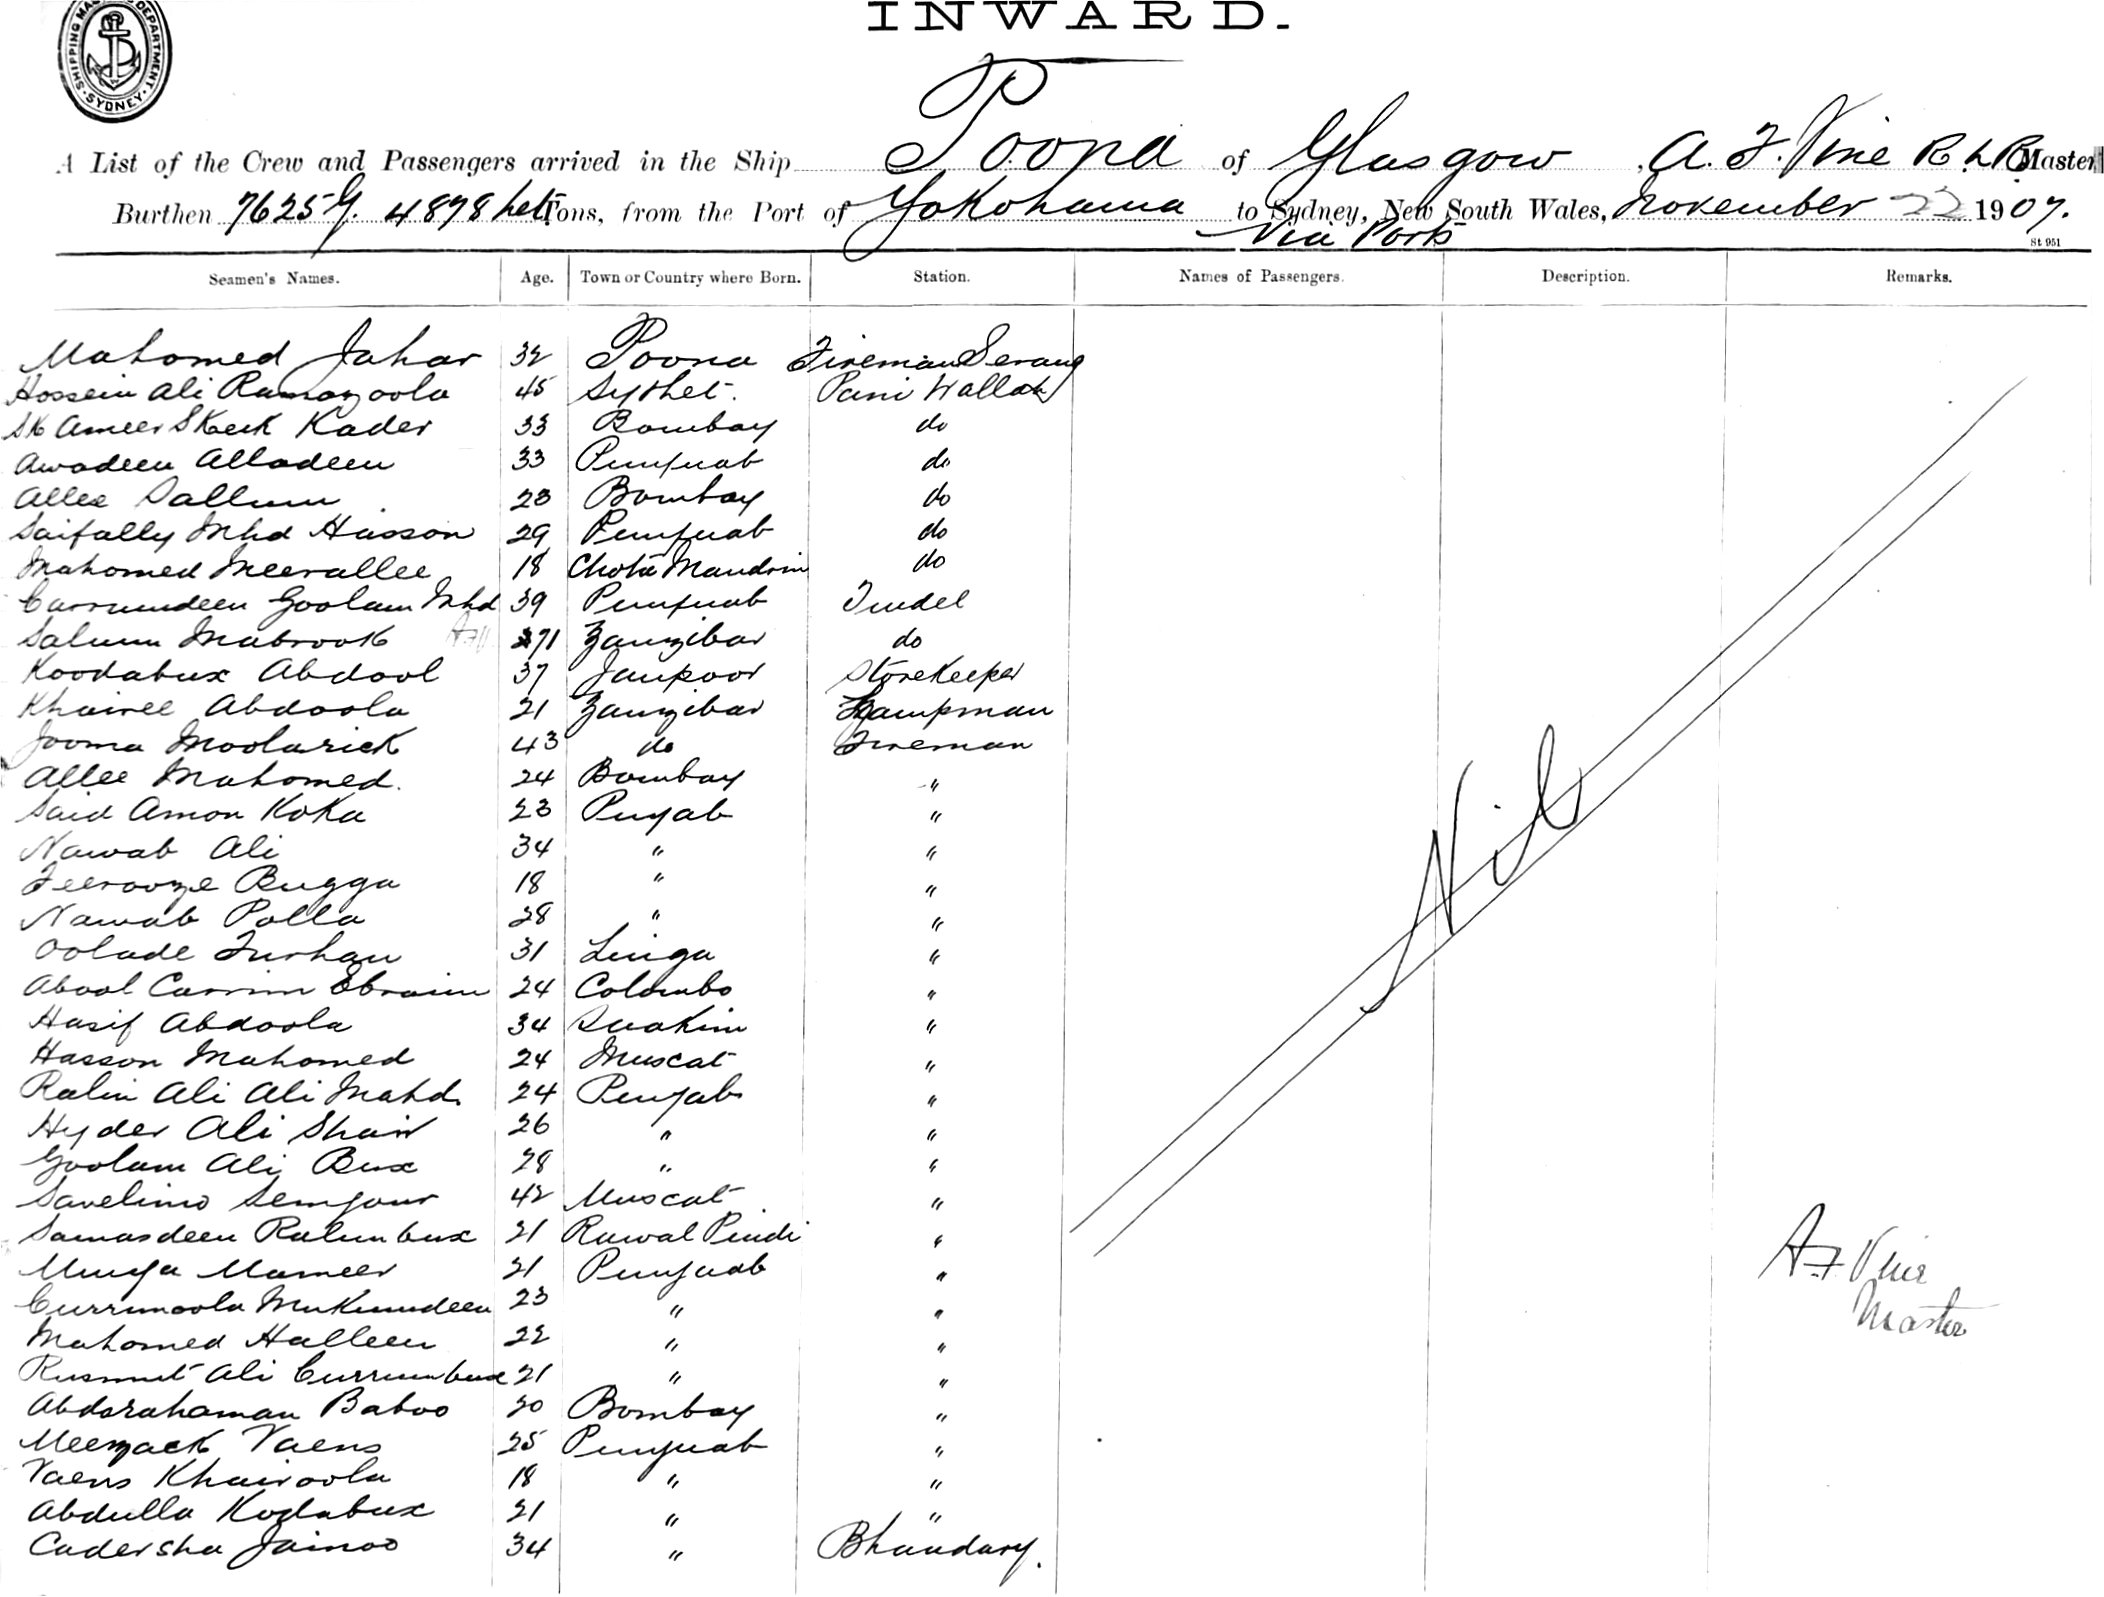 INWARD.
SHIPPING MASTER'S DEPARTMENT SYDNEY
A List of the Crew and Passengers arrived in the Ship Poona of Glasgow, A. F. Vine R.N.R. Master
Burthen 7625 G. 4878 Net Tons, from the Port of Yokohama to Sydney, New South Wales, November 22 1907.
Via Ports
St 951
Seamen's Names. Age. Town or Country where Born. Station. Names of Passengers. Description. Remarks.
Mahomed Jahar 32 Poona Fireman Serang
Hossein Ali Ramazoola 45 Sylhet. Pani Wallah
Sk Ameer Skeek Kader 33 Bombay do
Awadeen Alladeen 33 Punjuab do
Allee Sallum 23 Bombay do
Saifally Mhd Hasson 29 Punjuab do
Mahomed Meerallee 18 Chota Maudrin do
Currumdeen Goolam Mhd 39 Punjuab Tindel
Salum Mabrook 271 Zanzibar do
Koodabux Abdool 37 Janpoor Storekeeper
Khairee Abdoola 21 Zanzibar Lampman
Jooma Moolarick 43 do Fireman
Allee Mahomed. 24 Bombay "
Said Amon Koka 23 Punjab "
Nawab Ali 34 " "
Feerooze Bugga 18 " "
Nawab Palla 28 " "
Oolade Furhan 31 Linga "
Abool Carrim Ebraim 24 Colombo "
Hasif Abdoola 34 Suakim "
Hasson Mahomed 24 Muscat "
Ralin Ali Ali Mahd. 24 Punjab "
Hyder Ali Shair 26 " "
Goolam Ali Bux 28 " "
Savelimo Semjour 42 Muscat "
Samasdeen Ralimbux 21 Rawal Pindi "
Munga Mameer 21 Punjuab "
Currimoola Mukumdeen 23 " "
Mahomed Halleem 22 " "
Rusmut Ali Currumbux 21 " "
Abdarahaman Baboo 20 Bombay "
Meerzack Vaens 25 Punjuab "
Vaens Khairoola 18 " "
Abdulla Kodabux 21 " "
Cadersha Jainoo 34 " Bhandary.
Nil
A.F. Vine
Master